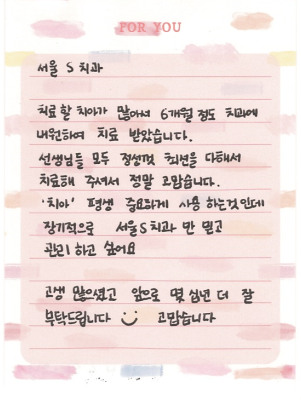 FOR YOU
서울 S 치과
치료 할 치아가 많아서 6개월 정도 치과에
내원하여 치료 받았습니다.
선생님들 모두 정성껏 최선을 다해서
치료해 주셔서 정말 고맙습니다.
'치아' 평생 중요하게 사용 하는것인데
장기적으로 서울S치과 만 믿고
관리 하고 싶어요
고생 많으셨고 앞으로 몇 십년 더 잘
부탁드립니다 고맙습니다